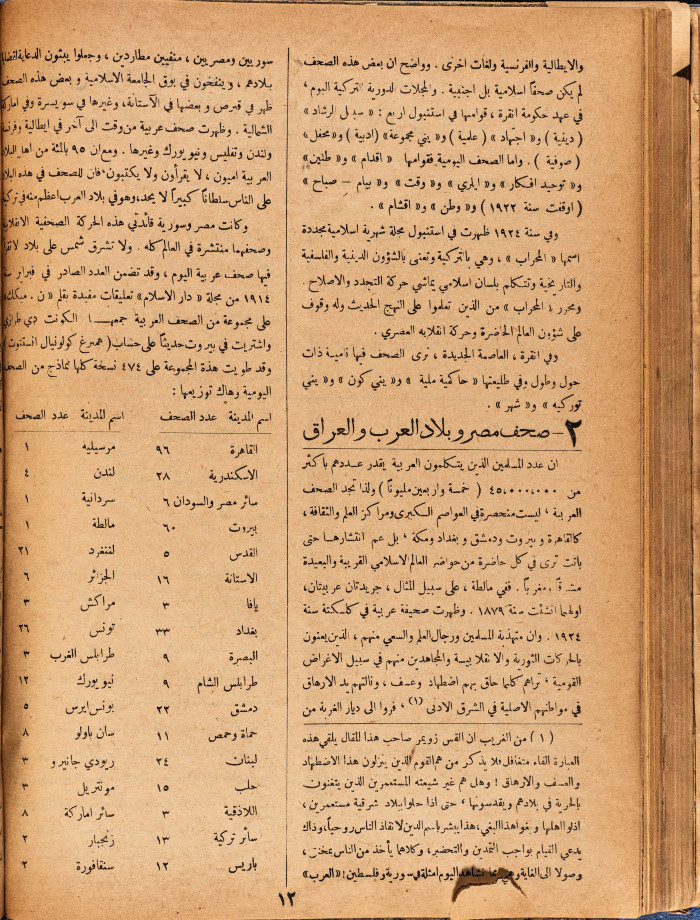 والايطالية والفرنسية ولغات اخرى . وواضح ان بعض هذه الصحف
لم يكن صحفاً اسلامية بل اجنبية . والمجلات الدورية التركية اليوم ،
في عهد حكومة انقرة ، قوامها في استنبول اربع : « سبيل الرشاد »
( دينية ) و« اجتهاد » ( علمية ) و« يني مجموعة » ( ادبية ) و« محفل »
( صوفية ) . واما الصحف اليومية فقوامها « اقدام » و« طنين »
و« توحيد افكار » و« ايلري » و« وقت » و« بيام – صباح »
( اوقفت سنة ١٩٢٢ ) و« وطن » و« اقشام » .
وفي سنة ١٩٢٤ ظهرت في استنبول مجلة شهرية اسلامية مجددة
اسمها « المحراب » ، وهي بالتركية وتعنى بالشؤون الدينية والفلسفية
والتاريخية وتتكلم بلسان اسلامي يماشي حركة التجدد والاصلاح .
ومحررو « المحراب » من الذين تعلموا على النهج الحديث وله وقوف
على شؤون العالم الحاضرة وحركة انقلابه العصري .
وفي انقرة ، العاصمة الجديدة ، نرى الصحف فيها نامية ذات
حول وطول وفي طليعتها « حاكمية ملية » و« يني كون » و« يني
توركيه » و« شهر » .
٢ – صحف مصر و بلاد العرب والعراق
ان عدد المسلمين الذين يتكلمون العربية يقدر عددهم باكثر
من ٤٥،٠٠٠،٠٠٠ ( خمسة واربعين مليوناً ) ولذا تجد الصحف
العربية ، ليست منحصرة في العواصم الكبرى ومراكز العلم والثقافة ،
كالقاهرة وبيروت ودمشق وبغداد ومكة ، بل عم انتشارها حتى
باتت ترى في كل حاضرة من حواضر العالم الاسلامي القريبة والبعيدة
مشرقاً ومغرباً . ففي مالطة ، على سبيل المثال ، جريدتان عربيتان ،
اولهما انشئت سنة ١٨٧٩ . وظهرت صحيفة عربية في كلسكتة سنة
١٩٢٤ . وان متهذبة المسلمين ورجال العلم والسعي منهم ، الذين يعنون
بالحركات الثورية والانقلابية والمجاهدين منهم في سبيل الاغراض
القومية ، تراهم كلما حاق بهم اضطهاد وعسف ، ونالتهم يد الارهاق
في مواطنهم الاصلية في الشرق الادنى (١) ، فروا الى ديار الغربة من
( ١ ) من الغريب ان القس زويمر صاحب هذا المقال يلقي هذه
العبارة القاء متغافل فلا يذكر من هم القوم الذين ينزلون هذا الاضطهاد
والعسف والارهاق ! وهل هم غير شيعته المستعمرين الذين يتغنون
بالحرية في بلادهم ويقدسونها ، حتى اذا حلوا بلاد شرقية مستعمرين ،
اذلوا اهلها وبغوا هذا البغي ، هذا يبشر باسم الدين لانقاذ الناس روحياً ، وذاك
يدعي القيام بواجب التمدين والتحضير ، وكلاهما يأخذ من الناس بمخنق ،
وصولا الى الغاية وهي نشاهد اليوم امثلة في سورية وفلسطين ! « العرب »
سوريين ومصريين ، منفيين مطاردين ، وجعلوا يبثون الدعاية لقضايا
بلادهم ، وينفخون في بوق الجامعة الاسلامية وبعض هذه الصحف
ظهر في قبرص وبعضها في الآستانة ، وغيرها في سويسرة وفي اماركة
الشمالية . وظهرت صحف عربية من وقت الى آخر في ايطالية وفرنسة
ولندن وتفليس ونيويورك وغيرها . ومع ان ٩٥ بالمئة من اهل البلاد
العربية اميون ، لا يقرأون ولا يكتبون ، فان للصحف في هذه البلاد
على الناس سلطاناً كبيراً لا يحد ، وهو في بلاد العرب اعظم منه في تركية
وكانت مصر وسورية قائدتي هذه الحركة الصحفية الانقلابية
وصحفهما منتشرة في العالم كله . ولا تشرق شمس على بلاد لا تقرأ
فيها صحف عربية اليوم ، وقد تضمن العدد الصادر في فبراير سنة
١٩١٤ من مجلة « دار الاسلام » تعليقات مفيدة بقلم « ن . ميكلك »
على مجموعة من الصحف العربية جمعها الكونت دي طرازي
واشتريت في بيروت حديثاً على حساب ( همبرغ كولونيال انستتوت )
وقد طويت هذه المجموعة على ٤٧٤ نسخة كلها نماذج من الصحف
اليومية وهاك توزيعها :
اسم المدينة عدد الصحف اسم المدينة عدد الصحف
القاهرة ٩٦ مرسيليه ١
الاسكندرية ٢٨ لندن ٤
سائر مصر والسودان ٦ سردانية ١
بيروت ٦٠ مالطة ١
القدس ٥ لننغرد ٢١
الاستانة ١٦ الجزائر ٦
يافا ٣ مراكش ٣
بغداد ٣٣ تونس ٢٦
البصرة ٩ طرابلس الغرب ٣
طرابلس الشام ٩ نيويورك ١٢
دمشق ٢٢ بونس ايرس ٥
حماة وحمص ١١ سان باولو ٨
لبنان ٢٤ ريودي جانيرو ٣
حلب ١٥ مونتريل ٣
اللاذقية ٣ سائر اماركة ٨
سائر تركية ١٣ زنجبار ٢
باريس ١٢ سنقافورة ٢
١٢